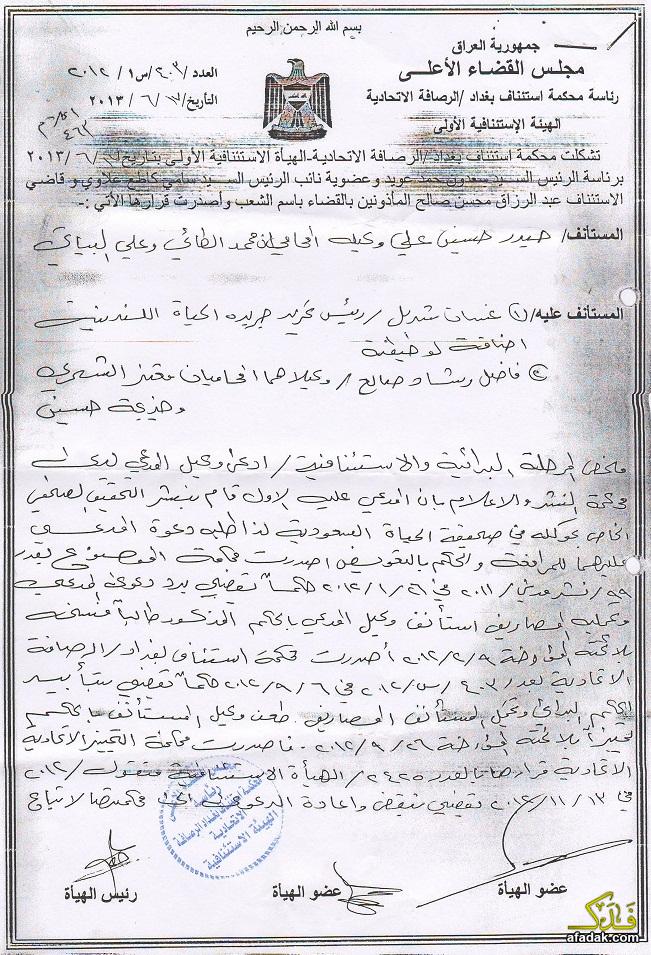 بسم الله الرحمن الرحيم
جمهورية العراق
مجلس القضاء الأعلى
رئاسة محكمة استئناف بغداد /الرصافة الاتحادية
الهيئة الإستئنافية الأولى
العدد/ ٤٠٣/س١/ ٢٠١٢
التاريخ/ /٦/ ٢٠١٣
تشكلت محكمة استئناف بغداد /الرصافة الاتحادية-الهيأة الاستئنافية الأولى بتاريخ /٦/ ٢٠١٣
برئاسة الرئيس السيد سعدون حمد عويد وعضوية نائب الرئيس السيد سامي كاطع علاوي و قاضي
الاستئناف عبد الرزاق محسن صالح المأذونين بالقضاء باسم الشعب وأصدرت قرارها الآتي :-
المستأنف/ حيدر حسين علي وكيله المحاميان محمد الطائي وعلي البياتي
المستأنف عليه/ ١ غسان شربل / رئيس تحرير جريدة الحياة اللندنية
اضافة لوظيفته
٢ فاضل رشاد صالح / وكيلاهما المحاميان معتز الشمري
وخديجة حسين
ملخص المرحلة البدائية والاستئنافية / ادعى وكيل المدعي لدى
محكمة النشر والاعلام بان المدعى عليه الاول قام بنشر التحقيق الصحفي
الخاص بموكله في صحيفة الحياة السعودية لذا طلب دعوة المدعى
عليهما للمرافعة والحكم بالتعويض اصدرت محكمة الموضوع بعدد
٩٩/ نشر مدني/ ٢٠١١ في ٢٦/ ١/ ٢٠١٢ حكماً يقضي برد دعوى المدعي
وتحميله المصاريف استأنف وكيل المدعي بالحكم المذكور طالباً فسخه
بلائحته المؤرخة ٩/ ٢/ ٢٠١٢ أصدرت محكمة استئناف بغداد/ الرصافة
الاتحادية بعدد ٤٠٣/ س/ ٢٠١٢ في ٦/ ٩/ ٢٠١٢ حكماً يقضي بتأييد
الحكم البدائي وتحمل المستأنف المصاريف. طعن وكيل المستأنف بالحكم
تمييزاً بلائحته المؤرخة ٢٦/ ٩/ ٢٠١٢. فاصدرت محكمة التمييز الاتحادية
الاتحادية قرارها بالعدد ٢٤٢٥/ الهيأة الاستئنافية منقول/ ٢٠١٢
في ١٣/ ١١/ ٢٠١٢ يقضي بنقض واعادة الدعوى الى محكمتها لاتباع
رئيس الهيأة
عضو الهيأة
عضو الهيأة
فدك
afadak.com